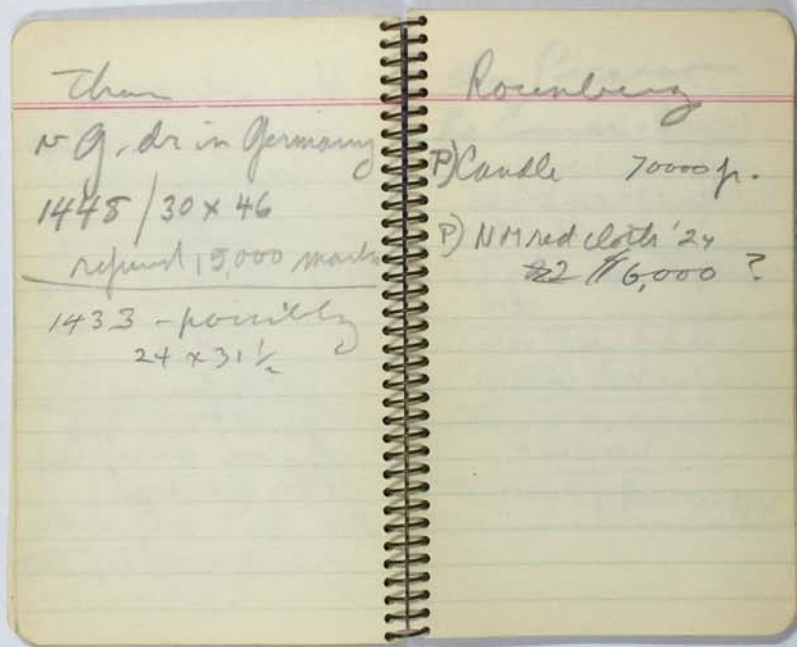 Than
v G. dr in Germany
1448 / 30 x 46
refused 15,000 marks
1433 - possibly
24 x 31 1/2
Rosenberg
P) Candle 70000 fr.
P) NM red cloth '24
6,000 ?